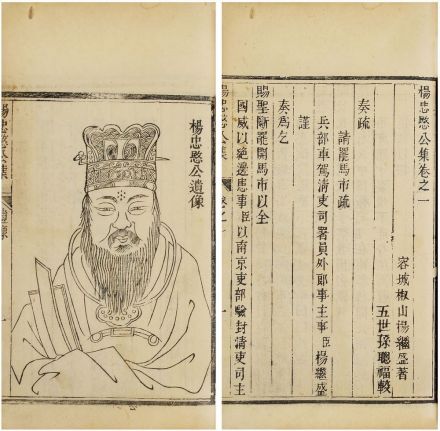 楊忠愍公集卷之一
容城椒山楊繼盛著
五世孫聰福較
奏疏
請罷馬市疏
兵部車駕清吏司署員外郎事主事臣楊繼盛
謹
奏爲乞
賜聖斷罷開馬市以全
國威以絕邊患事臣以南京吏部驗封清吏司主
楊忠愍公集 卷之一
楊忠愍公遺像
楊忠愍公集 遺像